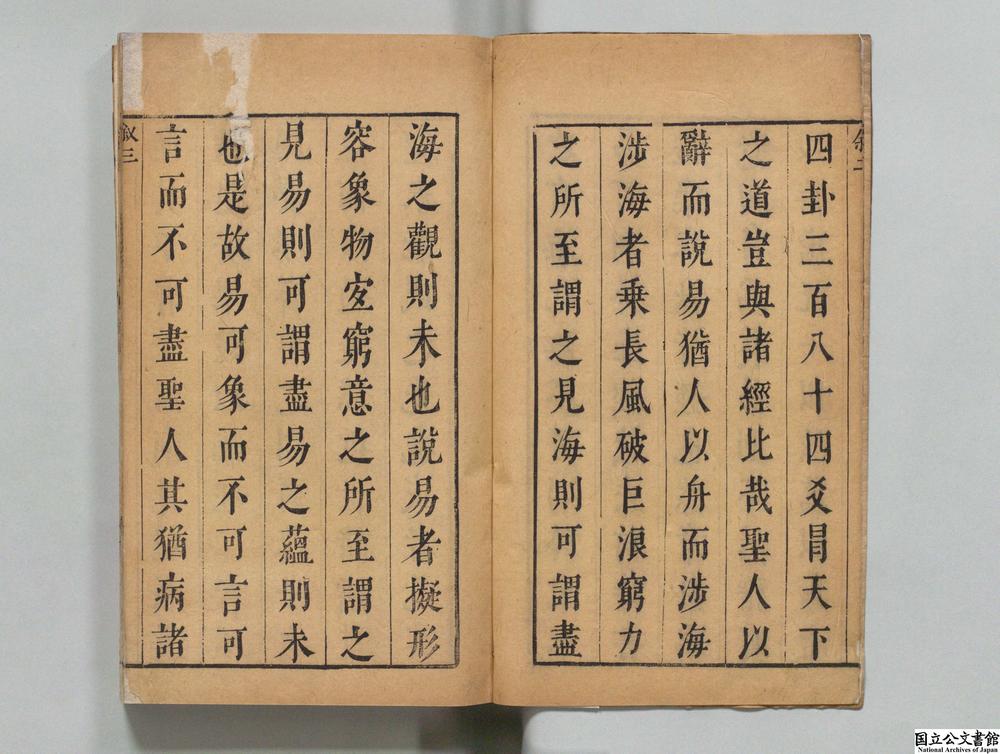 四卦三百八十四爻冐天下
之道豈與諸經比哉聖人以
辭而說易猶人以舟而涉海
涉海者乗長風破巨浪窮力
之所至謂之見海則可謂盡
海之觀則未也說易者擬形
容象物宐窮意之所至謂之
見易則可謂盡易之蘊則未
也是故易可象而不可言可
言而不可盡聖人其猶病諸
叙三
国立公文書館
National Archives of Japan